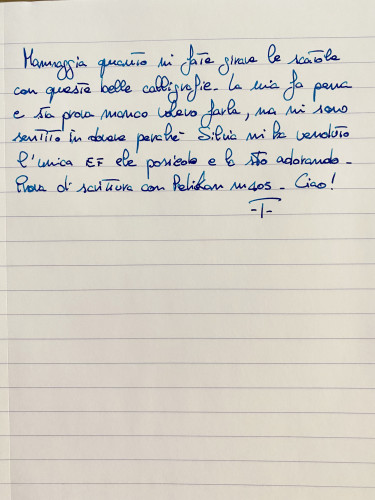 Mannaggia quanto mi fate girare le scatole
con queste belle calligrafie. La mia fa pena
e sta prova manco volevo farla, ma mi sono
sentito in dovere perché Silvia mi ha venduto
l'unica EF che possiedo e la sto adorando.
Prova di scrittura con Pelikan M405. Ciao!
-T-